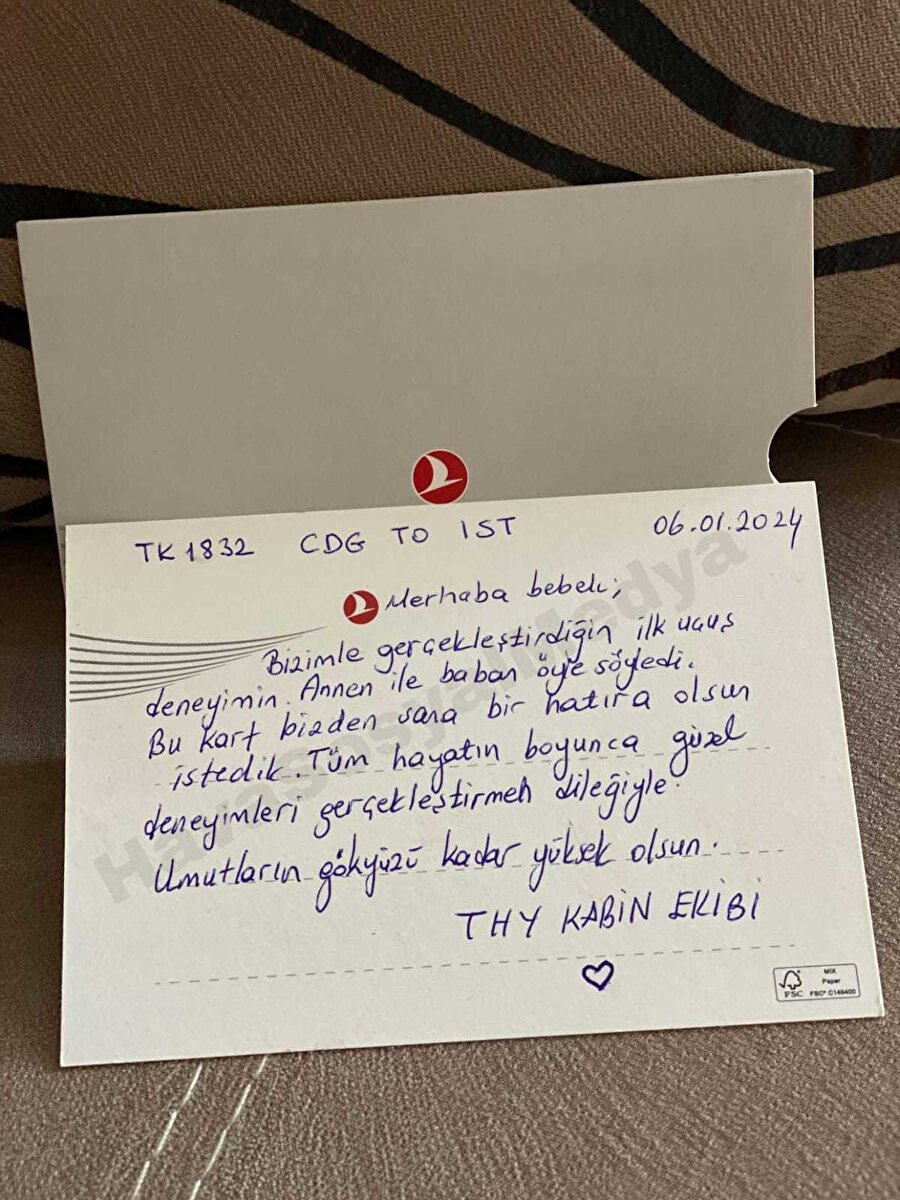 TK 1832 CDG TO IST 06.01.2024
Merhaba bebek,
Bizimle gerçekleştirdiğin ilk uçuş
deneyimin. Annen ile baban öyle söyledi.
Bu kart bizden sana bir hatıra olsun
istedik. Tüm hayatın boyunca güzel
deneyimleri gerçekleştirmek dileğiyle.
Umutların gökyüzü kadar yüksek olsun.
THY KABİN EKİBİ
HavaSosyalMedya
FSC
MIX
Paper
FSC® C149400